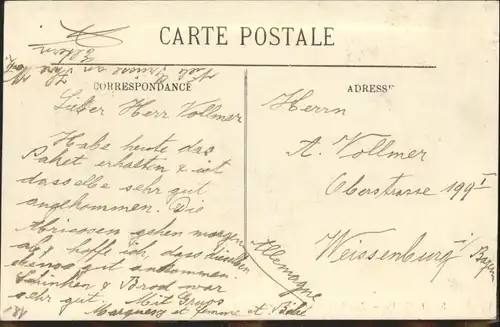 CARTE POSTALE
CORRESPONDANCE
ADRESSE
Lieber Herr Vollmer
Habe heute das
Paket erhalten & ist
dasselbe sehr gut
angekommen. Die
Abricosen gehen morgen
ab & hoffe ich, dass dieselben
ebenso gut ankommen.
Schinken & Brod war
sehr gut. Mit Gruss
et femme et Bébé
Viele Grüsse an Ihre
Herrn
A. Vollmer
Oberstrasse 199 I
Weissenburg i/
Bayern
Allemagne